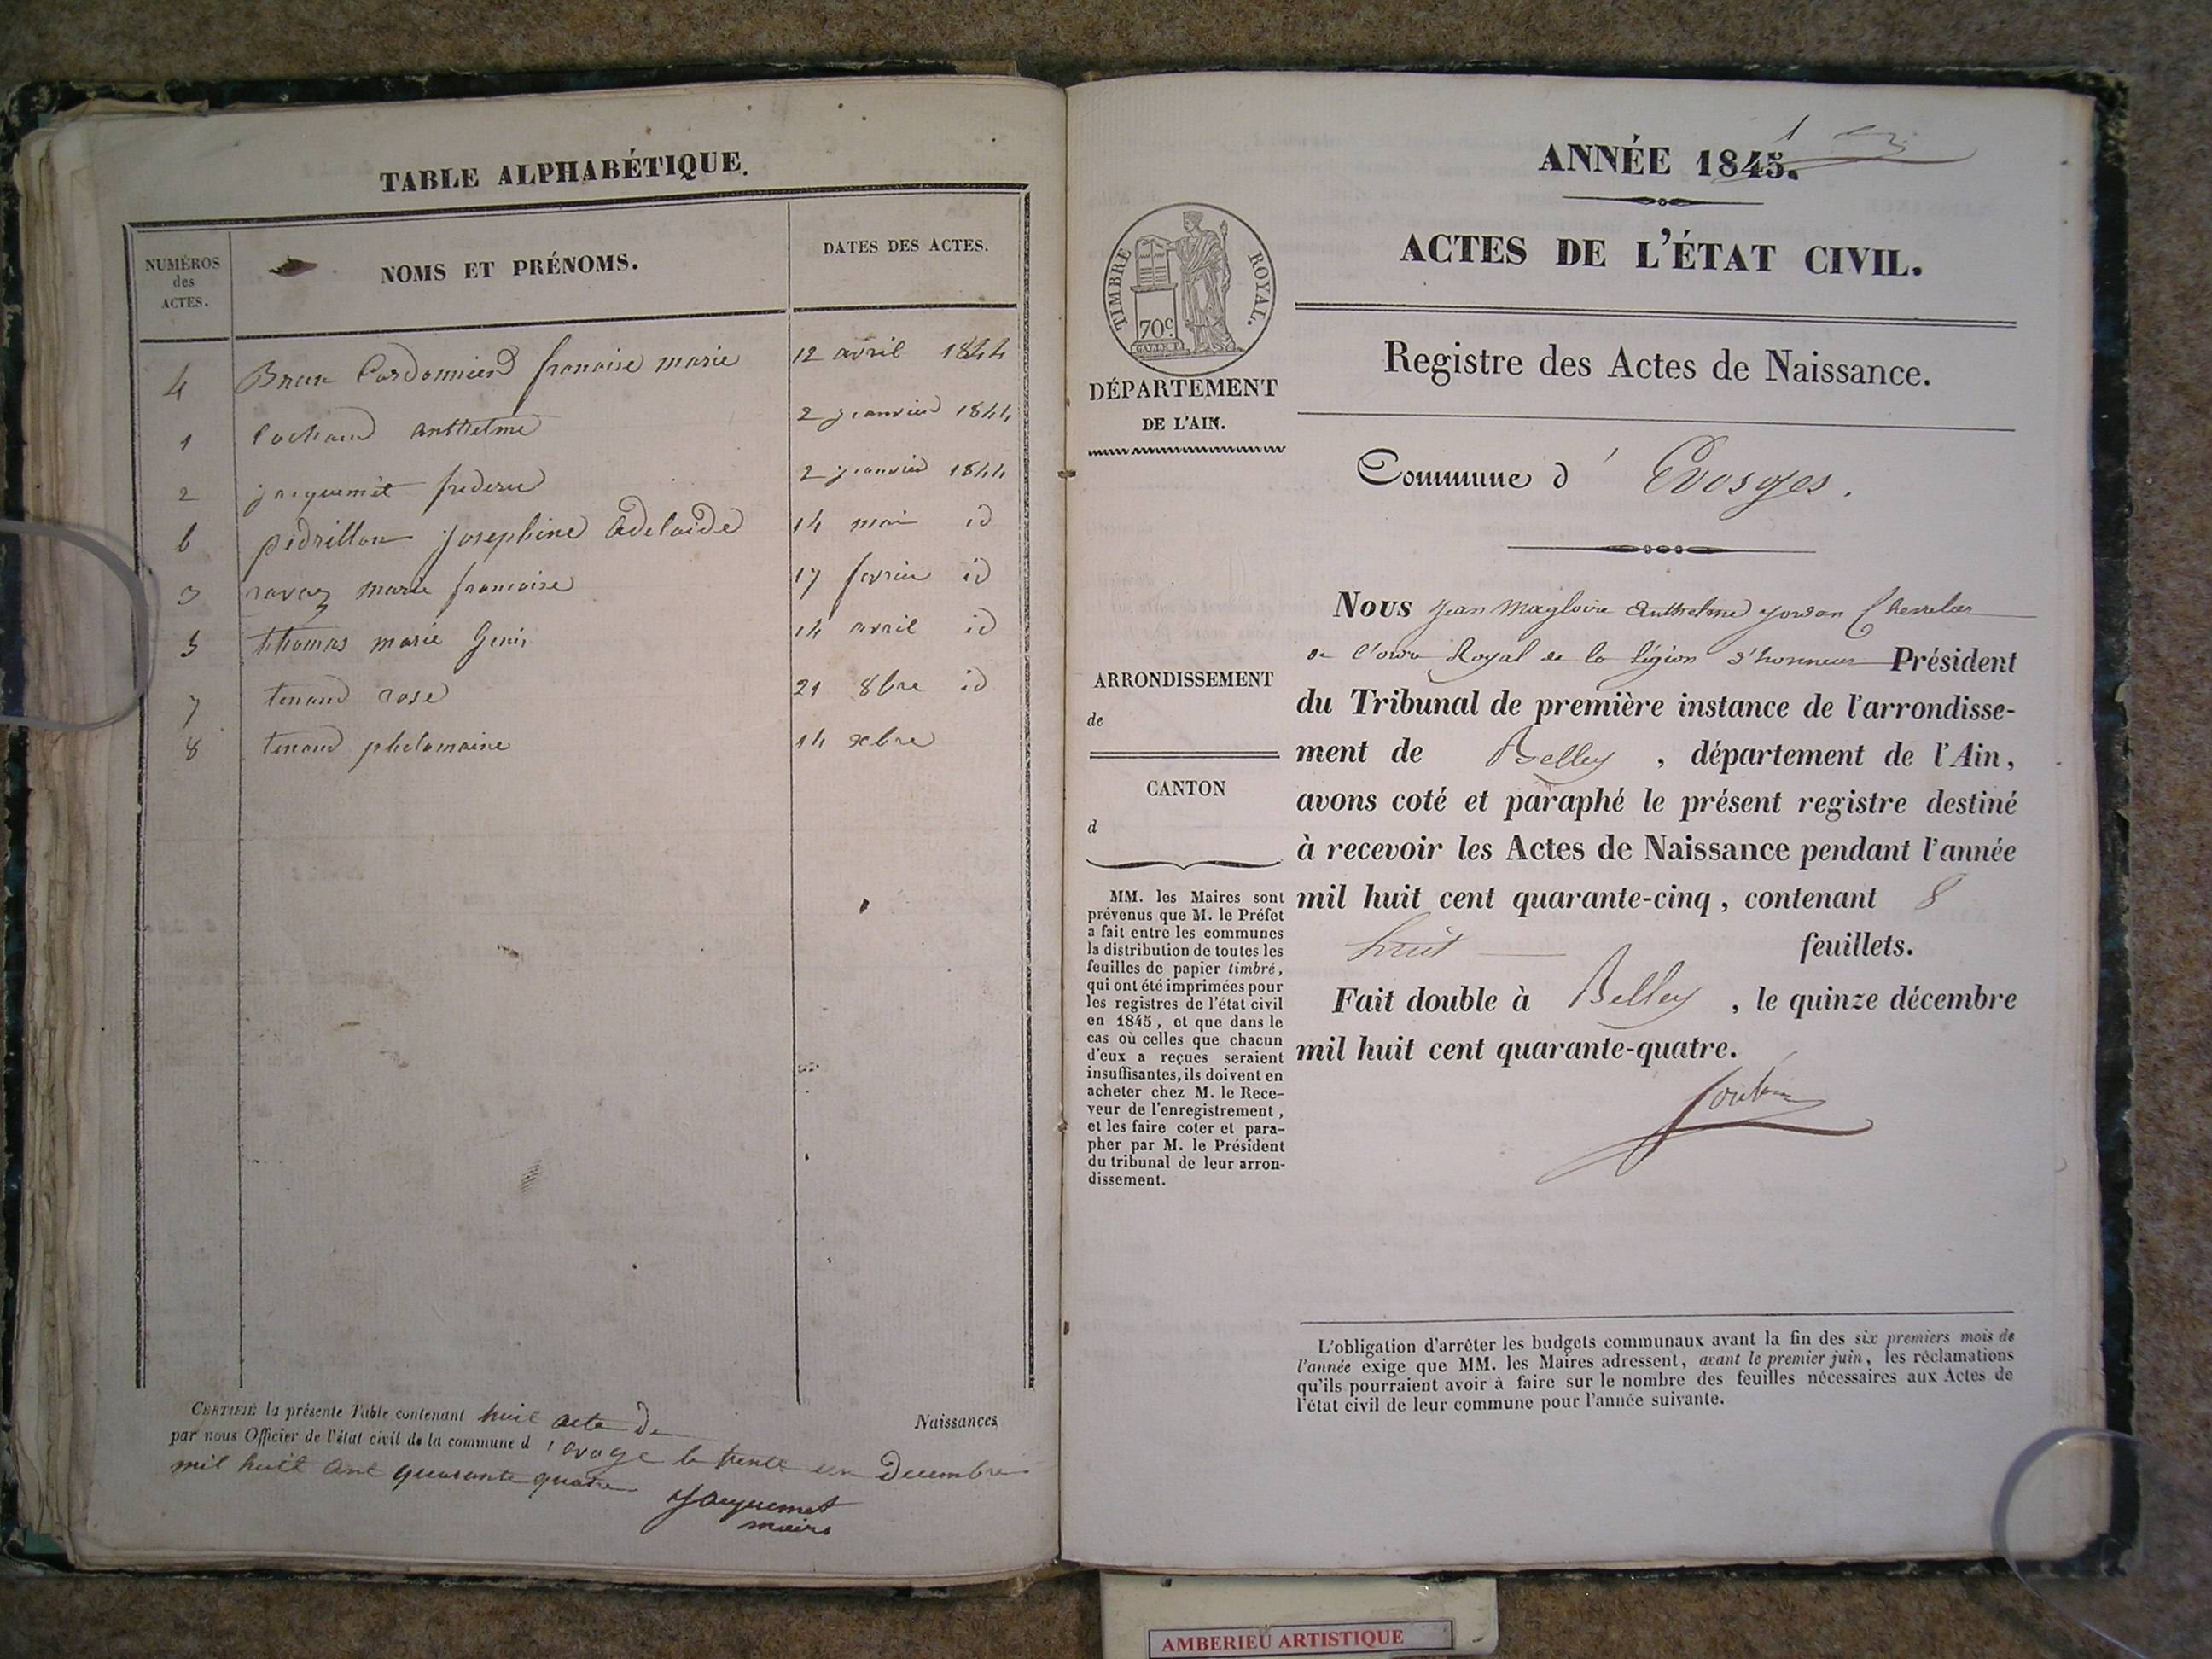 TABLE ALPHABÉTIQUE.
NUMÉROS
des
ACTES.
NOMS ET PRÉNOMS.
DATES DES ACTES.
4 Brun Cordonnier francoise marie 12 avril 1844
1 Cochaud anthelme 2 janvier 1844
2 jacquemet frederic 2 janvier 1844
6 pedrillon josephine adelaide 14 mai id
3 ravaz marie francoise 17 fevrier id
5 thomas marie 14 avril id
7 tenand rose 21 8bre id
8 tenand philomaine 14 xbre
CERTIFIÉ la présente Table contenant huit acte de Naissances
par nous Officier de l'état civil de la commune d'evoge le trente un Decembre
mil huit cent quarante quatre
Jacquemet
maire
1
ANNÉE 1845.
ACTES DE L'ÉTAT CIVIL.
TIMBRE ROYAL.
70c.
DÉPARTEMENT
DE L'AIN.
Registre des Actes de Naissance.
Commune d' Evosges.
Nous Jean Magloire Anthelme Jordan Chevalier
de l'ordre Royal de la Légion d'honneur Président
du Tribunal de première instance de l'arrondisse-
ment de Belley, département de l'Ain,
avons coté et paraphé le présent registre destiné
à recevoir les Actes de Naissance pendant l'année
mil huit cent quarante-cinq, contenant 8
huit feuillets.
Fait double à Belley, le quinze décembre
mil huit cent quarante-quatre.
ARRONDISSEMENT
de
CANTON
d
MM. les Maires sont
prévenus que M. le Préfet
a fait entre les communes
la distribution de toutes les
feuilles de papier timbré,
qui ont été imprimées pour
les registres de l'état civil
en 1845, et que dans le
cas où celles que chacun
d'eux a reçues seraient
insuffisantes, ils doivent en
acheter chez M. le Rece-
veur de l'enregistrement,
et les faire coter et para-
pher par M. le Président
du tribunal de leur arron-
dissement.
L'obligation d'arrêter les budgets communaux avant la fin des six premiers mois de
l'année exige que MM. les Maires adressent, avant le premier juin, les réclamations
qu'ils pourraient avoir à faire sur le nombre des feuilles nécessaires aux Actes de
l'état civil de leur commune pour l'année suivante.
AMBERIEU ARTISTIQUE